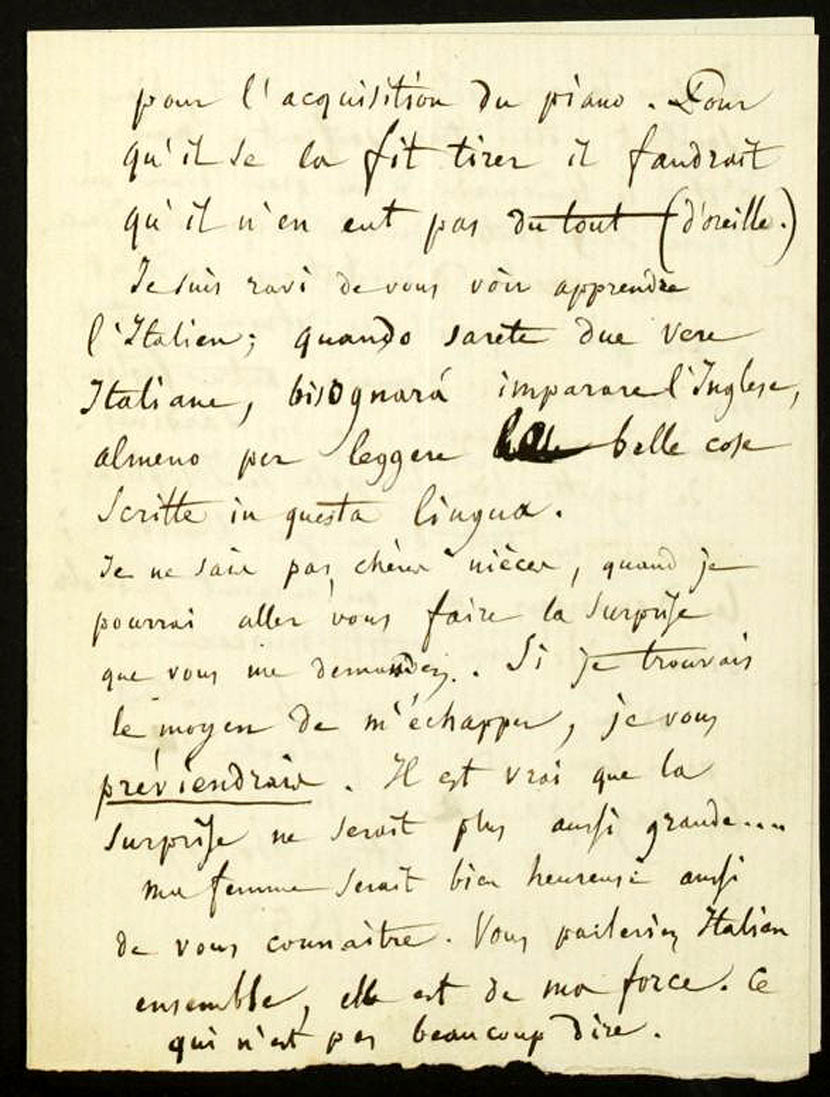 pour l'acquisition du piano. Pour
qu'il se la fit tirer il faudrait
qu'il n'en eut pas du tout (d'oreille.)
Je suis ravi de vous voir apprendre
l'Italien; quando sarete due vere
Italiane, bisognará imparare l'Inglese,
almeno per leggere belle cose
scritte in questa lingua.
Je ne sais pas, chères nièces, quand je
pourrai aller vous faire la surprise
que vous me demandez. Si je trouvais
le moyen de m'échapper, je vous
préviendrais. Il est vrai que la
surprise ne serait plus aussi grande....
Ma femme serait bien heureuse aussi
de vous connaitre. Vous parleriez Italien
ensemble, elle est de ma force. Ce
qui n'est pas beaucoup dire.